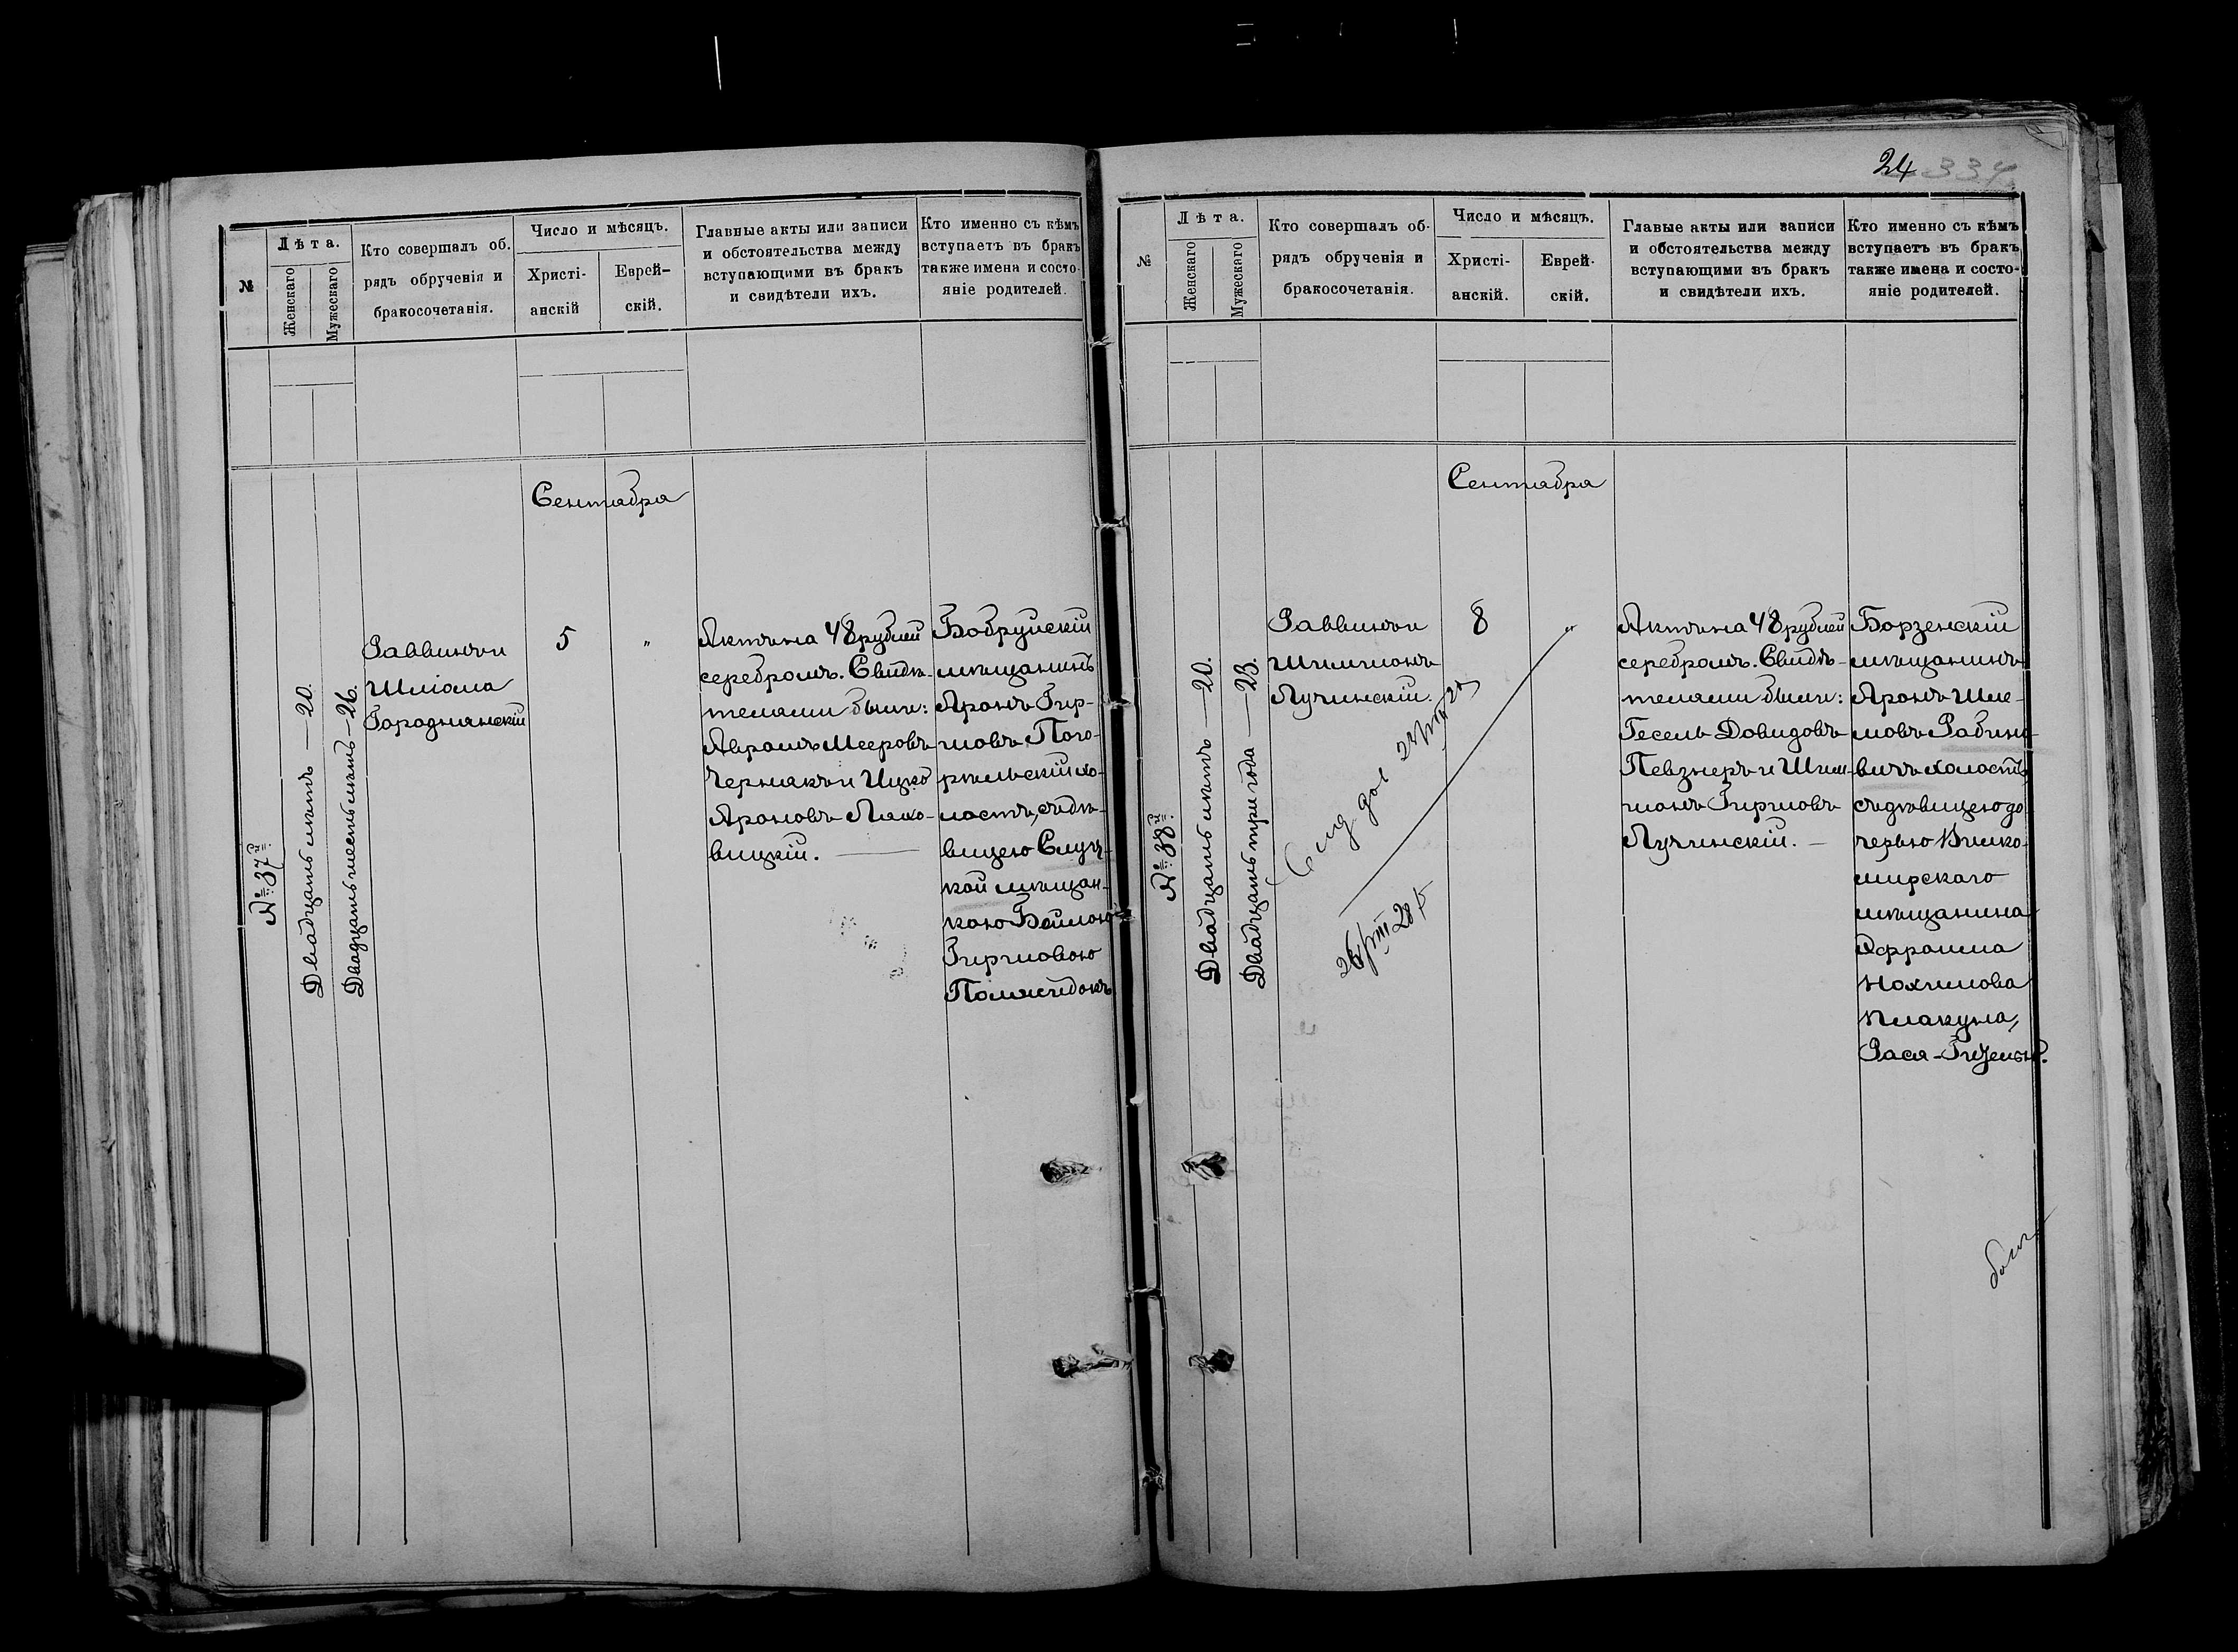 №
Лѣта.
Женскаго
Мужескаго
Кто совершалъ об.
рядъ обрученія и
бракосочетанія.
Число и мѣсяцъ.
Христі-
анскій
Еврей-
скій.
Главные акты или записи
и обстоятельства между
вступающими въ бракъ
и свидѣтели ихъ.
Кто именно съ кѣмъ
вступаетъ въ бракъ
также имена и состо-
яніе родителей.
Сентабра
№ 37й.
Двадцать лѣтъ — 20.
Двадцать шесть лѣтъ — 26.
Раввинъ и
Шліома
Городнянскій
5
"
Актъ на 48 рублей
серебромъ. Свидѣ-
телями были:
Авромъ Мееровъ
Чернякъ и Ицко
Ароновъ Ляхо-
вицкій. —
Бобруйскій
мѣщанинъ
Аронъ Гир-
шовъ Пого-
рѣльскій хо-
лостъ, съ дѣ-
вицею Слуц-
кой мѣщан-
кою Бейлою
Гиршовою
24 334
№
Лѣта.
Женскаго
Мужескаго
Кто совершалъ об-
рядъ обрученія и
бракосочетанія.
Число и мѣсяцъ.
Христі-
анскій.
Еврей-
скій.
Главые акты или записи
и обстоятельства между
вступающими въ бракъ
и свидѣтели ихъ.
Кто именно съ кѣмъ
вступаетъ въ бракъ
также имена и состо-
яніе родителей.
Сентабра
№ 38й.
Двадцать лѣтъ — 20.
Двадцать три года — 23.
Раввинъ и
Шлимонъ
Лучинскій.
8
"
Актъ на 48 рублей
серебромъ. Свидѣ-
телями были:
Гесель Довидовъ
Певзнеръ и Шли-
монъ Гиршовъ
Лучинскій. —
Борзенскій
мѣщанинъ
Аронъ Шле-
мовъ Рабино-
вичъ холостъ,
съ дѣвицею до-
черью Вилко-
мирскаго
мѣщанина
Эфроима
Нохимова
Плакуна,